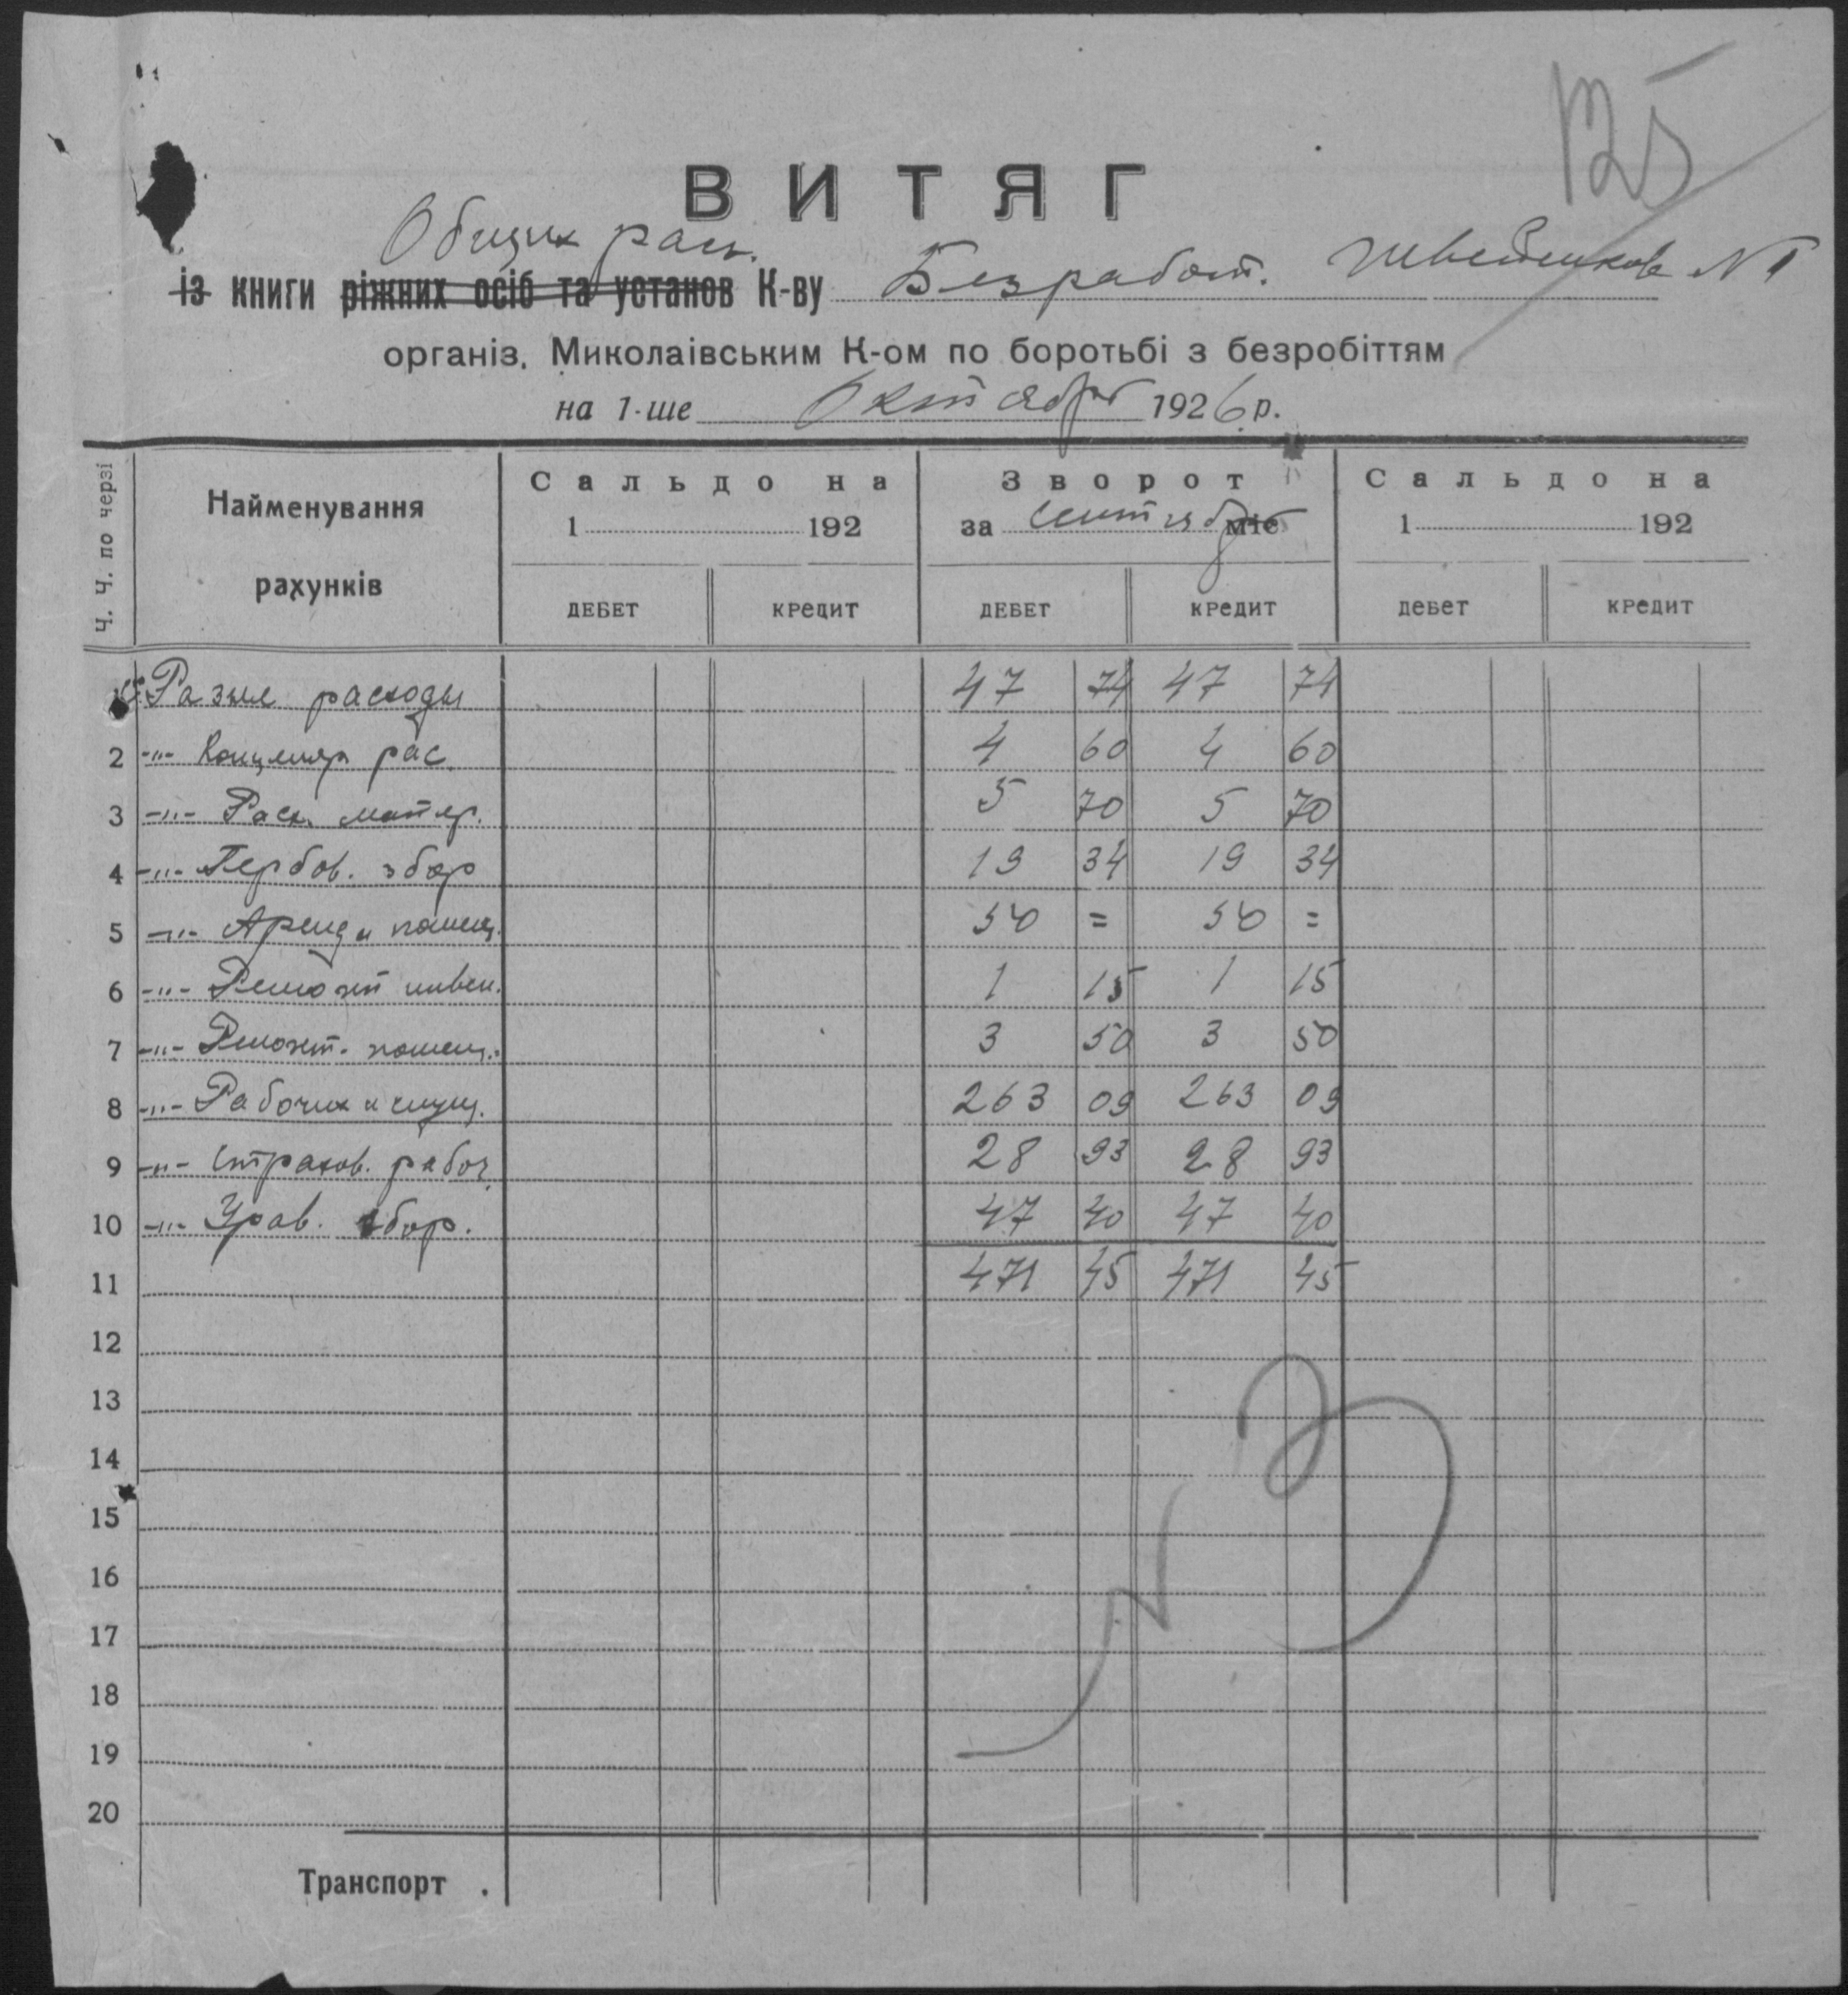 125
ВИТЯГ
Общих расх.
із книги ріжних осіб та установ К-ву Безработ. N 1
організ. Миколаівським К-ом по боротьбі з безробіттям
на 1-ше Октября 1926 р.
Ч. Ч. по черзі Найменування рахунків Сальдо на 1 192 Зворот за сентябрь міс Сальдо на 1 192
ДЕБЕТ КРЕДИТ ДЕБЕТ КРЕДИТ ДЕБЕТ КРЕДИТ
Разные расходы 47 74 47 74
2 -"- Канцеляр рас. 4 60 4 60
3 -"- Расх. матер. 5 70 5 70
4 -"- Гербов. збор 19 34 19 34
5 -"- Аренда помещ. 50 = 50 =
6 -"- Ремонт инвен. 1 15 1 15
7 -"- Ремонт. помещ. 3 50 3 50
8 -"- Рабочих и служ. 263 09 263 09
9 -"- Страхов. рабоч. 28 93 28 93
10 -"- Урав. сбор. 47 40 47 40
11 471 45 471 45
12
13
14
15
16
17
18
19
20
Транспорт .